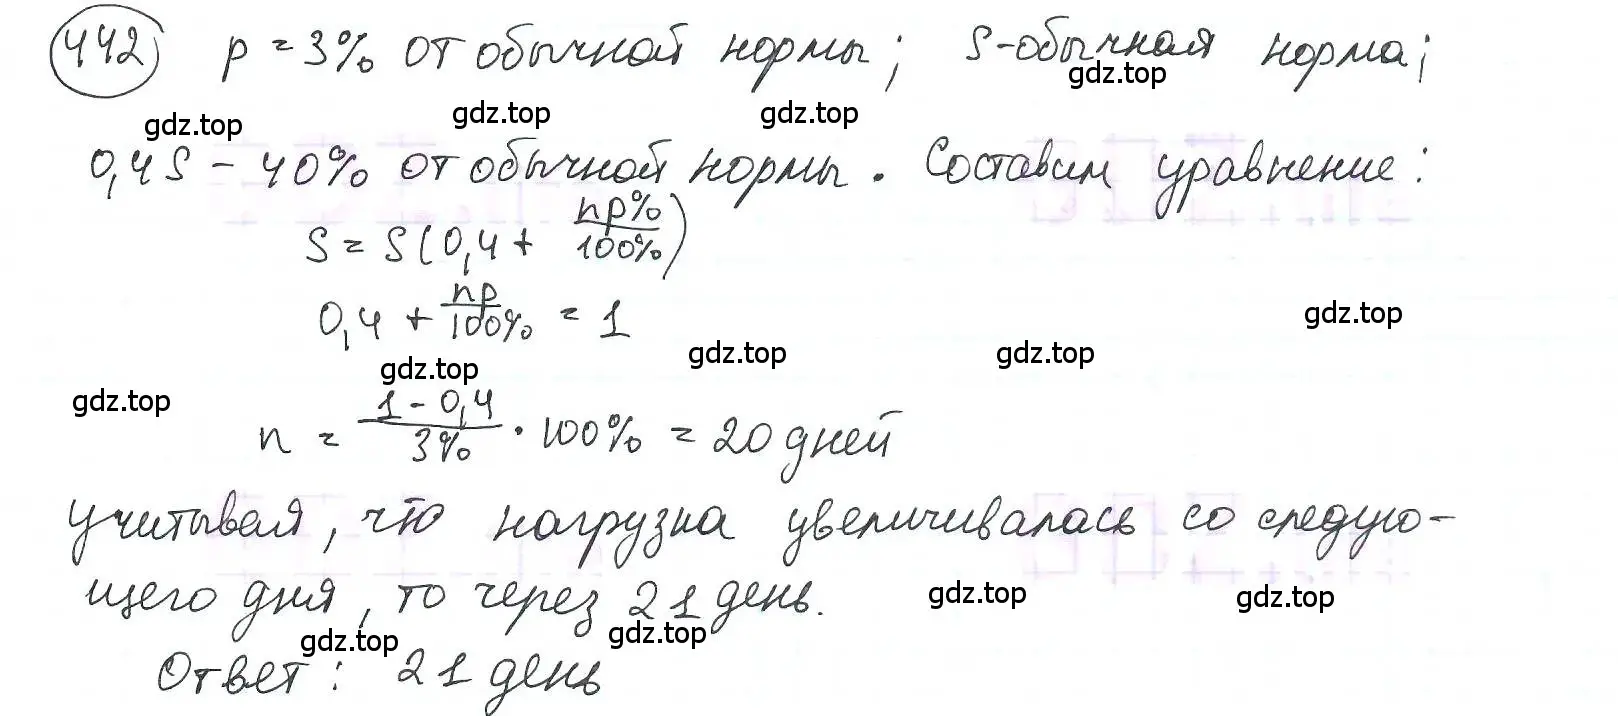 442 p = 3% от обычной нормы; S-обычная норма;
gdz.top
gdz.top gdz.top gdz.top
0,4S - 40% от обычной нормы. Составим уравнение:
S = S(0,4 + np%/100%)
0,4 + np/100% = 1
gdz.top
gdz.top gdz.top gdz.top
gdz.top
n = 1 - 0,4/3% · 100% = 20 дней
учитывая, что нагрузка увеличивалась со следую-
щего дня, то через 21 день.
gdz.top gdz.top
gdz.top gdz.top
Ответ: 21 день